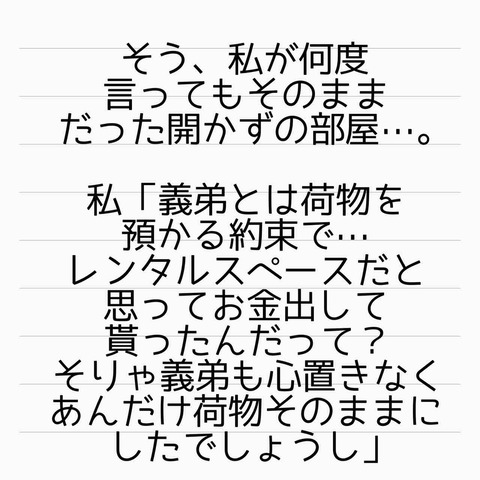 そう、私が何度
言ってもそのまま
だった開かずの部屋…。
私「義弟とは荷物を
預かる約束で…
レンタルスペースだと
思ってお金出して
貰ったんだって？
そりゃ義弟も心置きなく
あんだけ荷物そのままに
したでしょうし」